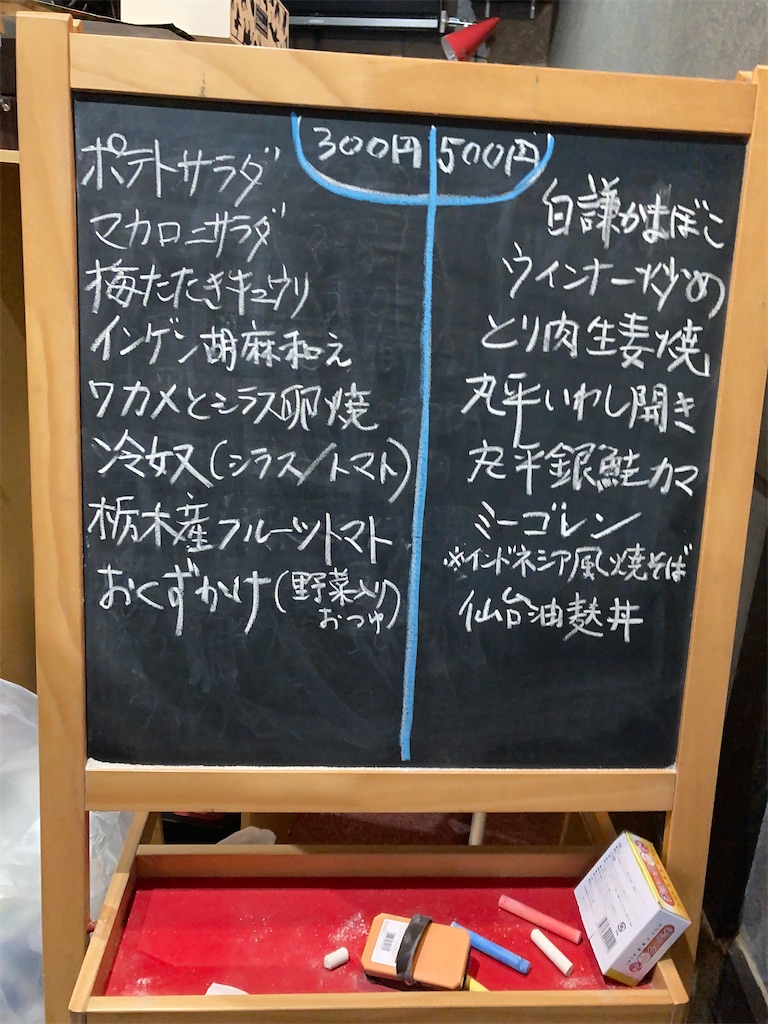 300円
500円
ポテトサラダ
マカロニサラダ
梅たたきキュウリ
インゲン胡麻和え
ワカメとシラス卵焼
冷奴(シラス/トマト)
栃木産フルーツトマト
おくずかけ(野菜入り
おつゆ)
白謙かまぼこ
ウインナー炒め
とり肉生姜焼
丸平いわし開き
丸平銀鮭カマ
ミーゴレン
※インドネシア風焼そば
仙台油麸丼